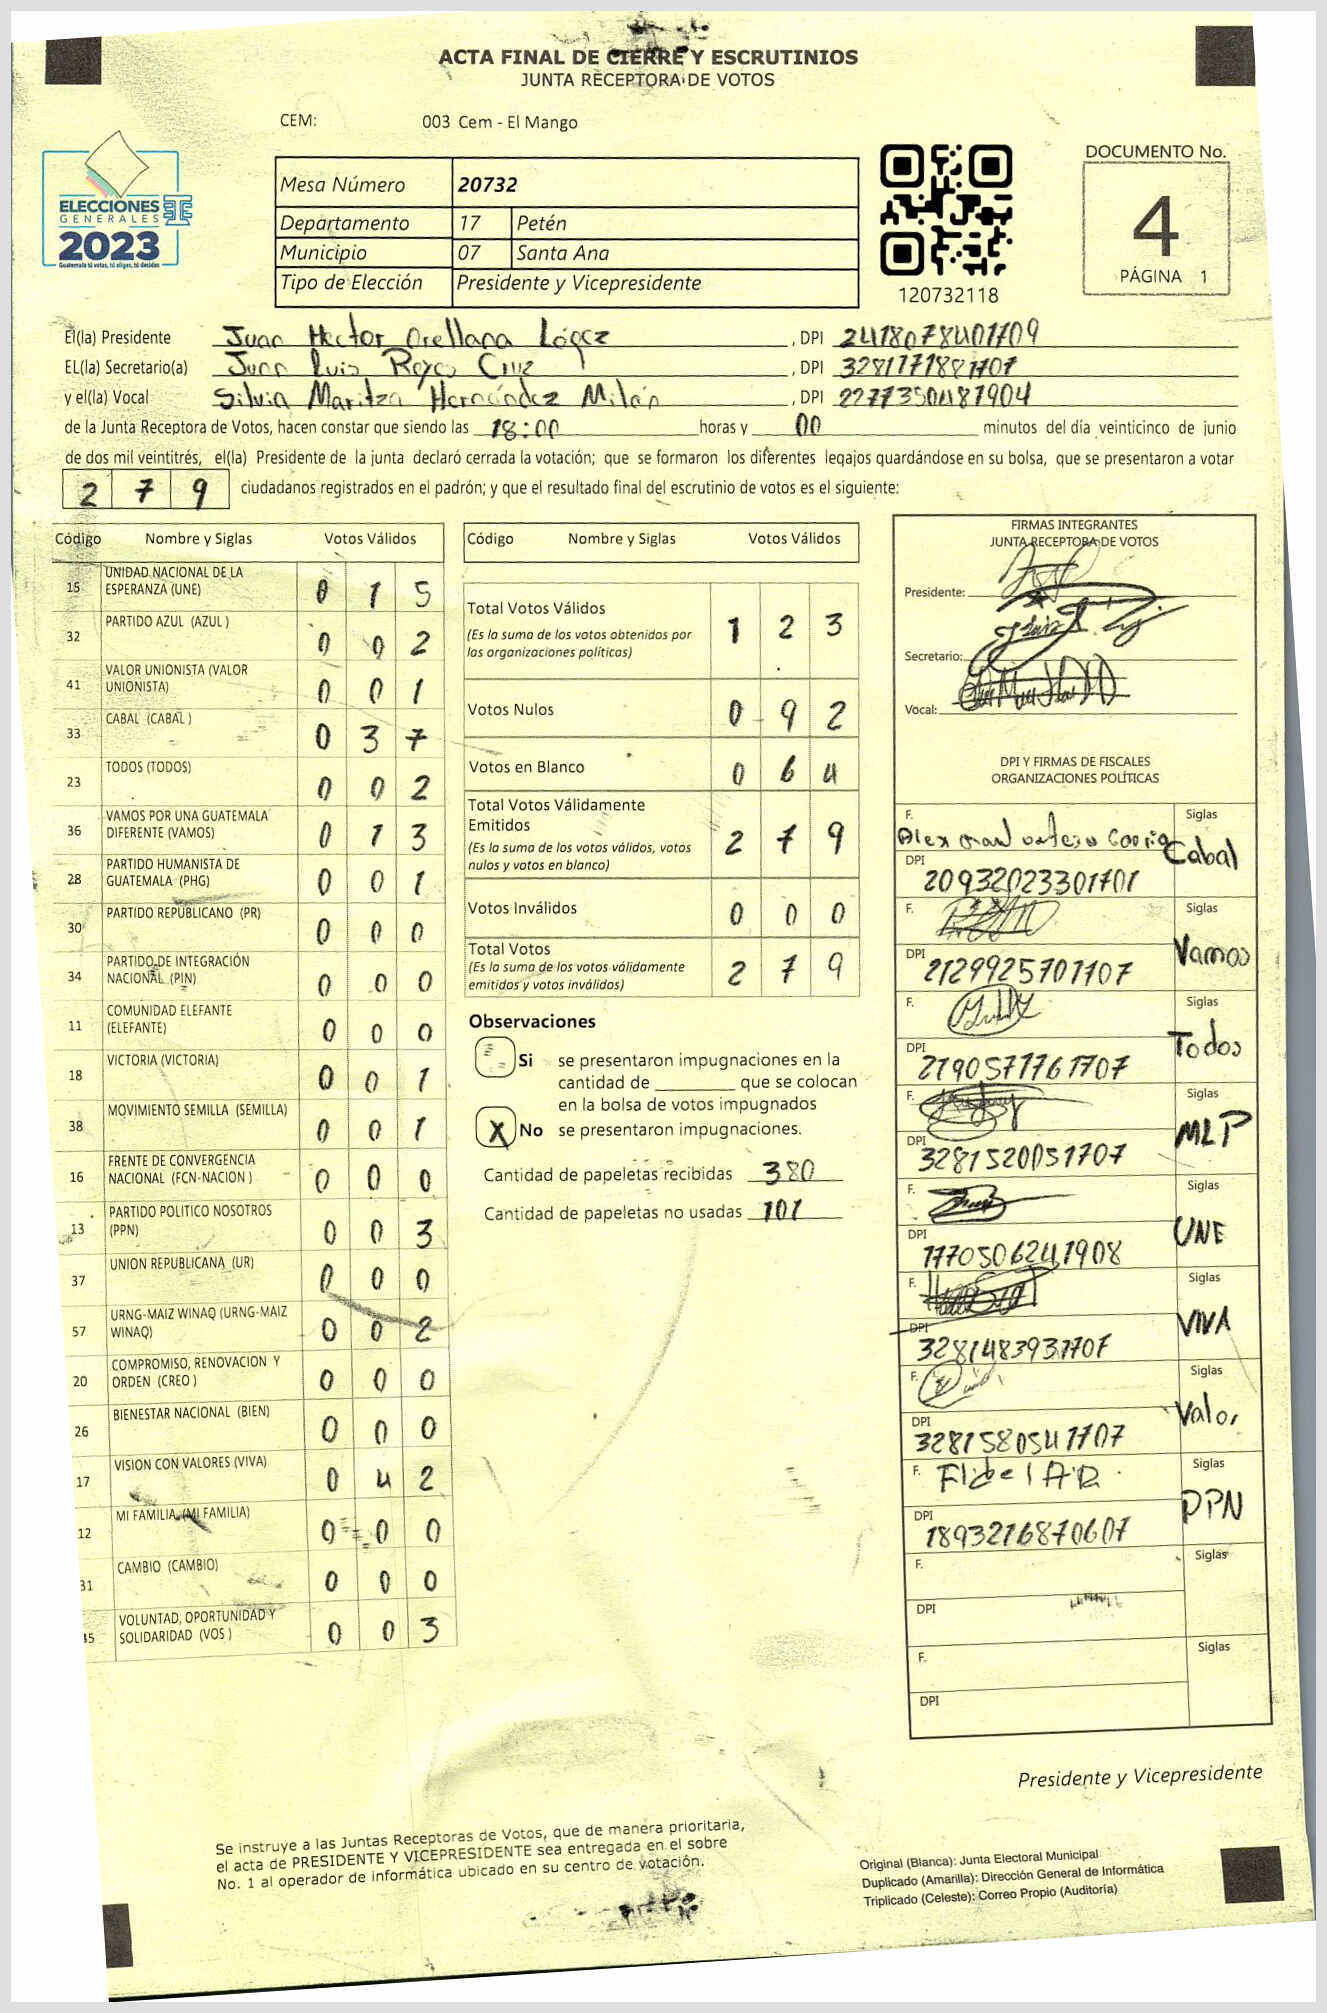 ACTA FINAL DE CIERRE Y ESCRUTINIOS
JUNTA RECEPTORA DE VOTOS
CEM: 003 Cem - El Mango
ELECCIONES
GENERALES
2023
Guatemala tú votas, tú eliges, tú decides
Mesa Número 20732
Departamento 17 Petén
Municipio 07 Santa Ana
Tipo de Elección Presidente y Vicepresidente
120732118
DOCUMENTO No.
4
PÁGINA 1
El(la) Presidente Juan Hector Orellana López , DPI 2418078401709
EL(la) Secretario(a) Juan Luis Reyes Cruz , DPI 3281771881707
y el(la) Vocal Silvia Maritza Hernández Milán , DPI 2277350487904
de la Junta Receptora de Votos, hacen constar que siendo las 18:00 horas y 00 minutos del día veinticinco de junio
de dos mil veintitrés, el(la) Presidente de la junta declaró cerrada la votación; que se formaron los diferentes legajos guardándose en su bolsa, que se presentaron a votar
2 7 9 ciudadanos registrados en el padrón; y que el resultado final del escrutinio de votos es el siguiente:
Código Nombre y Siglas Votos Válidos
15 UNIDAD NACIONAL DE LA ESPERANZA (UNE) 0 1 5
32 PARTIDO AZUL (AZUL ) 0 0 2
41 VALOR UNIONISTA (VALOR UNIONISTA) 0 0 1
33 CABAL (CABAL ) 0 3 7
23 TODOS (TODOS) 0 0 2
36 VAMOS POR UNA GUATEMALA DIFERENTE (VAMOS) 0 1 3
28 PARTIDO HUMANISTA DE GUATEMALA (PHG) 0 0 1
30 PARTIDO REPUBLICANO (PR) 0 0 0
34 PARTIDO DE INTEGRACIÓN NACIONAL (PIN) 0 0 0
11 COMUNIDAD ELEFANTE (ELEFANTE) 0 0 0
18 VICTORIA (VICTORIA) 0 0 1
38 MOVIMIENTO SEMILLA (SEMILLA) 0 0 1
16 FRENTE DE CONVERGENCIA NACIONAL (FCN-NACION ) 0 0 0
13 PARTIDO POLITICO NOSOTROS (PPN) 0 0 3
37 UNION REPUBLICANA (UR) 0 0 0
57 URNG-MAIZ WINAQ (URNG-MAIZ WINAQ) 0 0 2
20 COMPROMISO, RENOVACION Y ORDEN (CREO ) 0 0 0
26 BIENESTAR NACIONAL (BIEN) 0 0 0
17 VISION CON VALORES (VIVA) 0 4 2
12 MI FAMILIA (MI FAMILIA) 0 0 0
31 CAMBIO (CAMBIO) 0 0 0
45 VOLUNTAD, OPORTUNIDAD Y SOLIDARIDAD (VOS ) 0 0 3
Código Nombre y Siglas Votos Válidos
Total Votos Válidos 1 2 3
(Es la suma de los votos obtenidos por
las organizaciones políticas)
Votos Nulos 0 9 2
Votos en Blanco 0 6 4
Total Votos Válidamente
Emitidos 2 7 9
(Es la suma de los votos válidos, votos
nulos y votos en blanco)
Votos Inválidos 0 0 0
Total Votos 2 7 9
(Es la suma de los votos válidamente
emitidos y votos inválidos)
Observaciones
Si se presentaron impugnaciones en la
cantidad de ________ que se colocan
en la bolsa de votos impugnados
X No se presentaron impugnaciones.
Cantidad de papeletas recibidas 380
Cantidad de papeletas no usadas 101
FIRMAS INTEGRANTES
JUNTA RECEPTORA DE VOTOS
Presidente:
Secretario:
Vocal:
DPI Y FIRMAS DE FISCALES
ORGANIZACIONES POLÍTICAS
F. Siglas
Cabal
DPI 20932023301701
F. Siglas
Vamos
DPI 2129925701707
F. Siglas
Todos
DPI 2190577761707
F. Siglas
MLP
DPI 3281520051707
F. Siglas
UNE
DPI 1770506241908
F. Siglas
VIVA
DPI 3281483931707
F. Siglas
Valor
DPI 3281580541707
F. Siglas
PPN
DPI 1893216870607
F. Siglas
DPI
F. Siglas
DPI
Presidente y Vicepresidente
Se instruye a las Juntas Receptoras de Votos, que de manera prioritaria,
el acta de PRESIDENTE Y VICEPRESIDENTE sea entregada en el sobre
No. 1 al operador de informática ubicado en su centro de votación.
Original (Blanca): Junta Electoral Municipal
Duplicado (Amarilla): Dirección General de Informática
Triplicado (Celeste): Correo Propio (Auditoría)